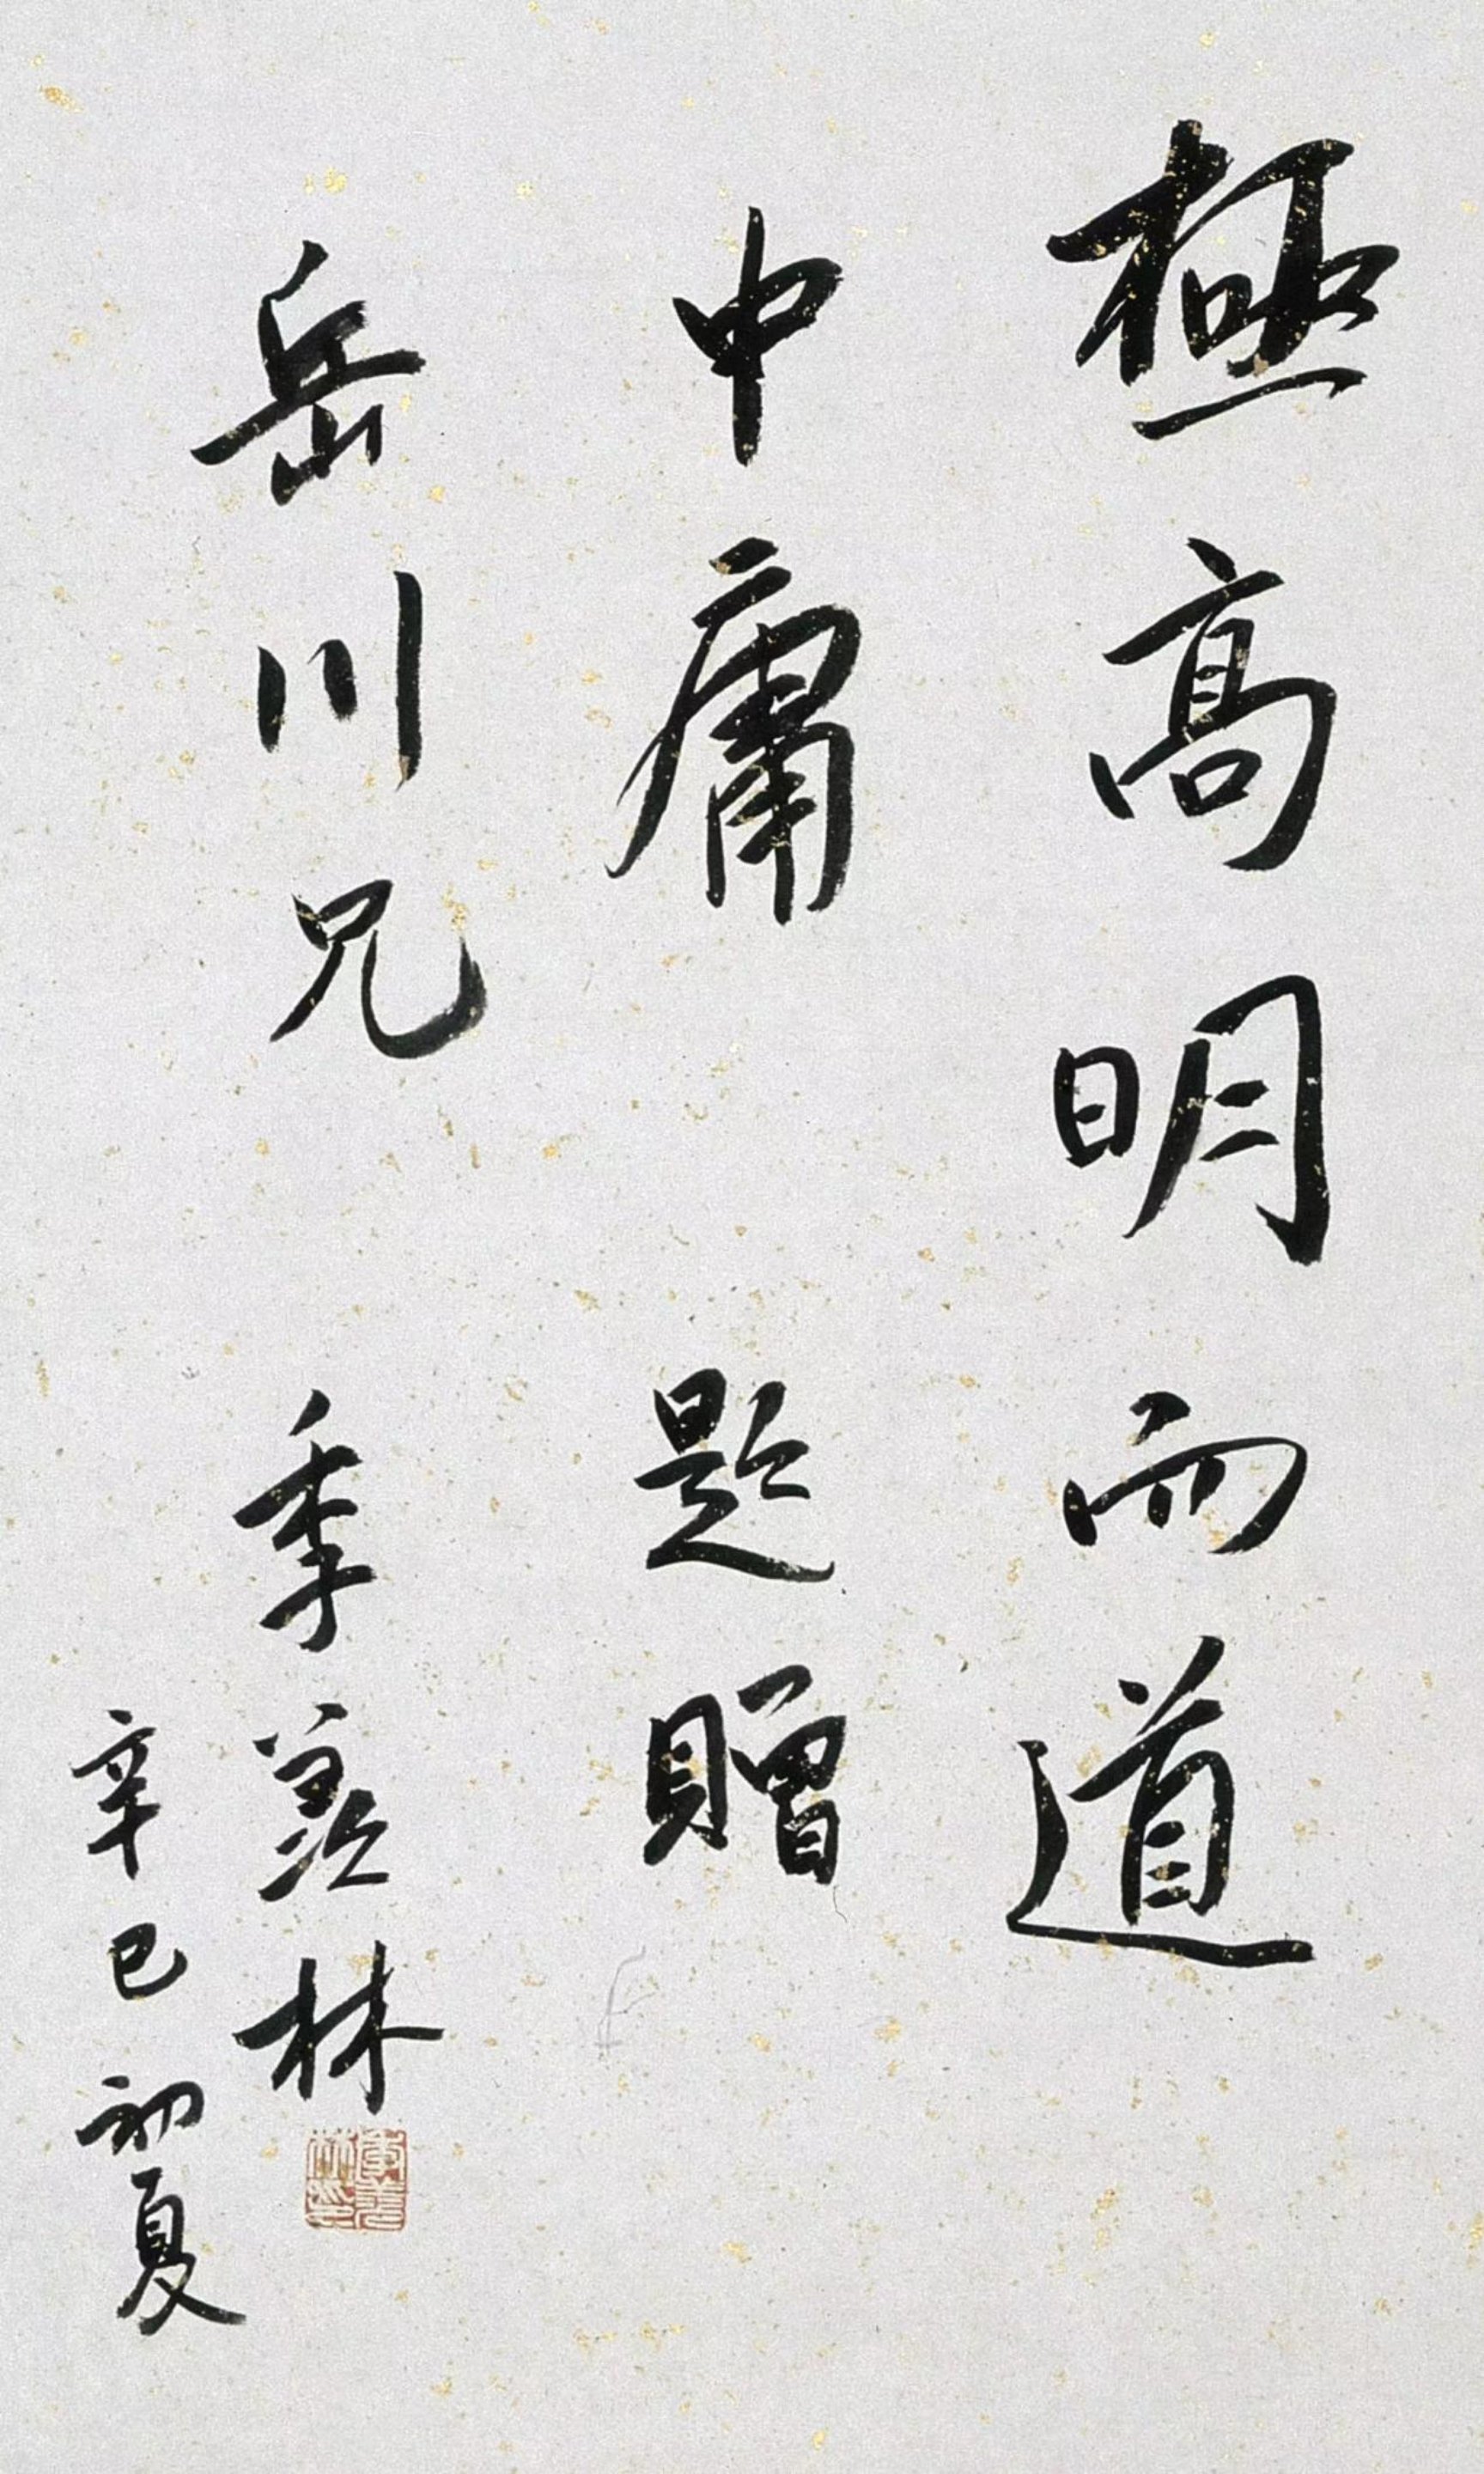 極高明而道
中庸 題贈
岳川兄 季羡林
辛巳初夏
季羡林印